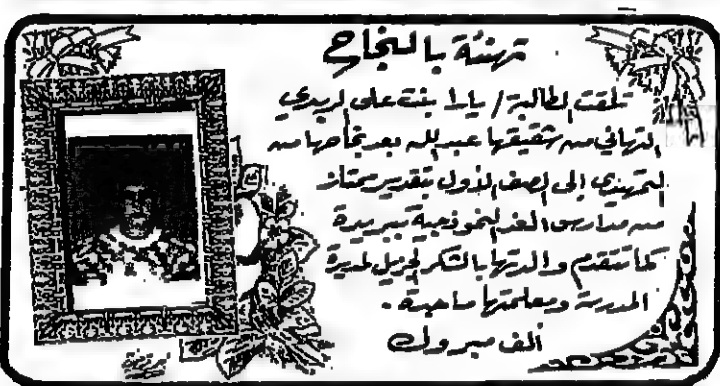 تهنئة بالنجاح
تلقت الطالبة / يارا بنت علي الربدي
التهاني من شقيقها عبدالله بعد نجاحها من
التمهيدي إلى الصف الأول بتقدير ممتاز
من مدارس الغد النموذجية ببريدة
كما تتقدم والدتها بالشكر الجزيل لمديرة
المدرسة ومعلمتها ماجدة .
ألف مبروك